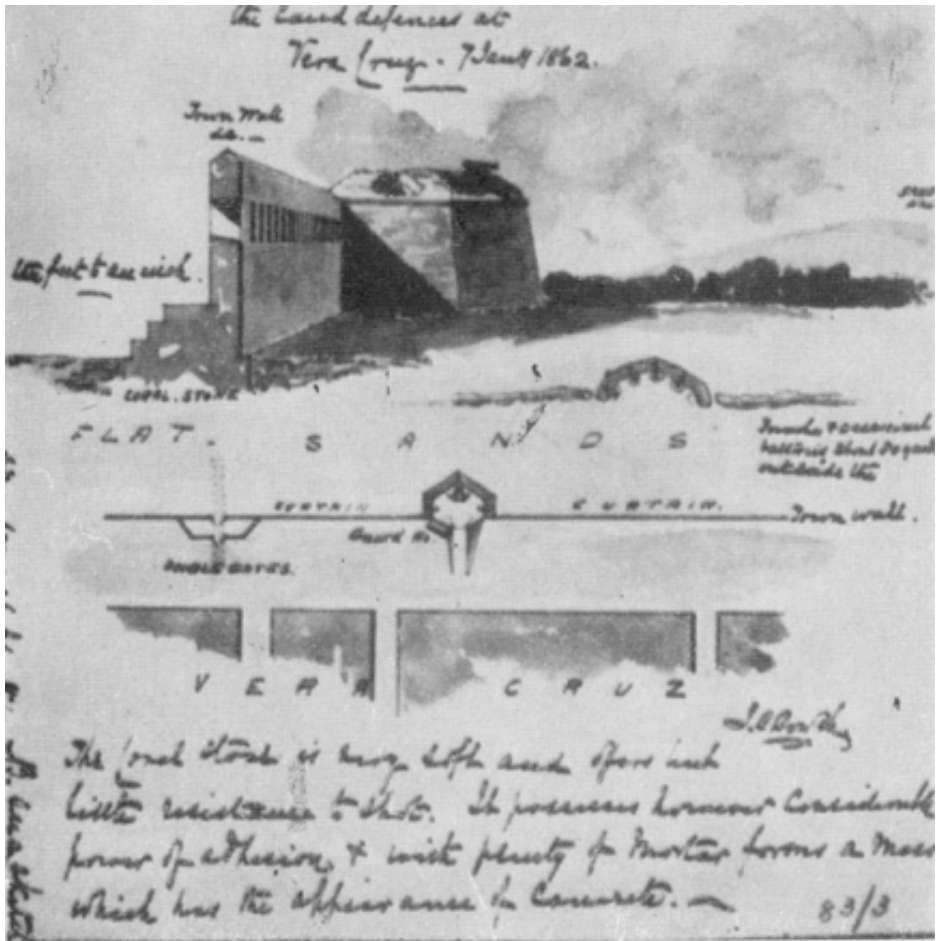 the Land defences at
Vera Cruz. 7 Jany 1862.
Town Wall
&c.
feet to an inch.
CORAL. STONE
FLAT. SANDS
Trench & occasional
outside the
CURTAIN CURTAIN.
Town wall.
Guard Ho
DOUBLE GATES.
VERA CRUZ
The Coral Stone is very soft and offers but
little resistance to shot. It possesses however Considerable
power of adhesion, & with plenty of Mortar forms a Mass
which has the appearance of Concrete.
83/3